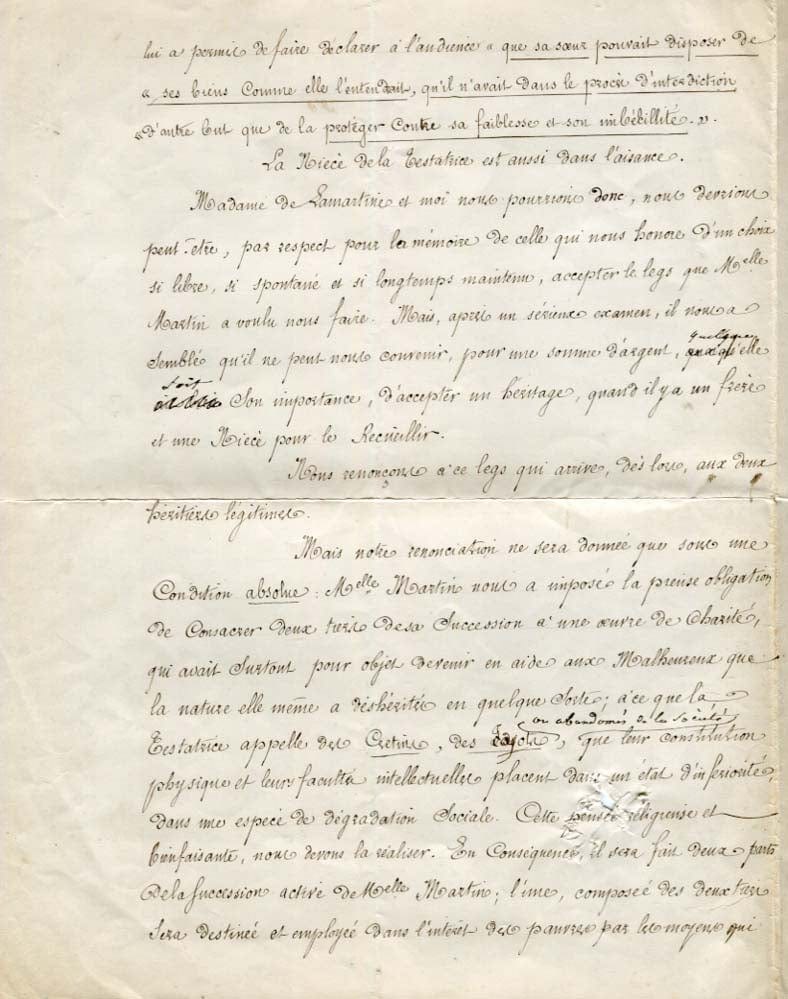 lui a permis de faire déclarer à l'audience « que sa sœur pouvait disposer de
« ses biens comme elle l'entendait, qu'il n'avait dans le procès d'interdiction
« d'autre but que de la protéger contre sa faiblesse et son imbécillité. ».
La Nièce de la Testatrice est aussi dans l'aisance.
Madame de Lamartine et moi nous pourrions donc, nous devrions
peut-être, par respect pour la mémoire de celle qui nous honore d'un choix
si libre, si spontané et si longtemps maintenu, accepter le legs que Melle
Martin a voulu nous faire. Mais, après un sérieux examen, il nous a
semblé qu'il ne peut nous convenir, pour une somme d'argent, quelque qu'elle
soit son importance, d'accepter un héritage, quand il y a un frère
et une Nièce pour le Recueillir.
Nous renonçons à ce legs qui arrive, dès lors, aux deux
héritiers légitimes.
Mais notre renonciation ne sera donnée que sous une
Condition absolue : Melle Martin nous a imposé la pieuse obligation
de Consacrer deux tiers de sa Succession à une œuvre de Charité,
qui avait Surtout pour objet de venir en aide aux Malheureux que
la nature elle même a déshérités en quelque sorte ; à ce que la
ou abandonnés de la société
Testatrice appelle des Cretins, des Cagots, que leur constitution
physique et leurs facultés intellectuelles placent dans un état d'infériorité,
dans une espèce de dégradation Sociale. Cette pensée religieuse et
bienfaisante, nous devons la réaliser. En Conséquence, il sera fait deux parts
de la Succession active de Melle Martin ; l'une, composée des deux tiers
Sera destinée et employée dans l'intérêt des pauvres par les moyens qui